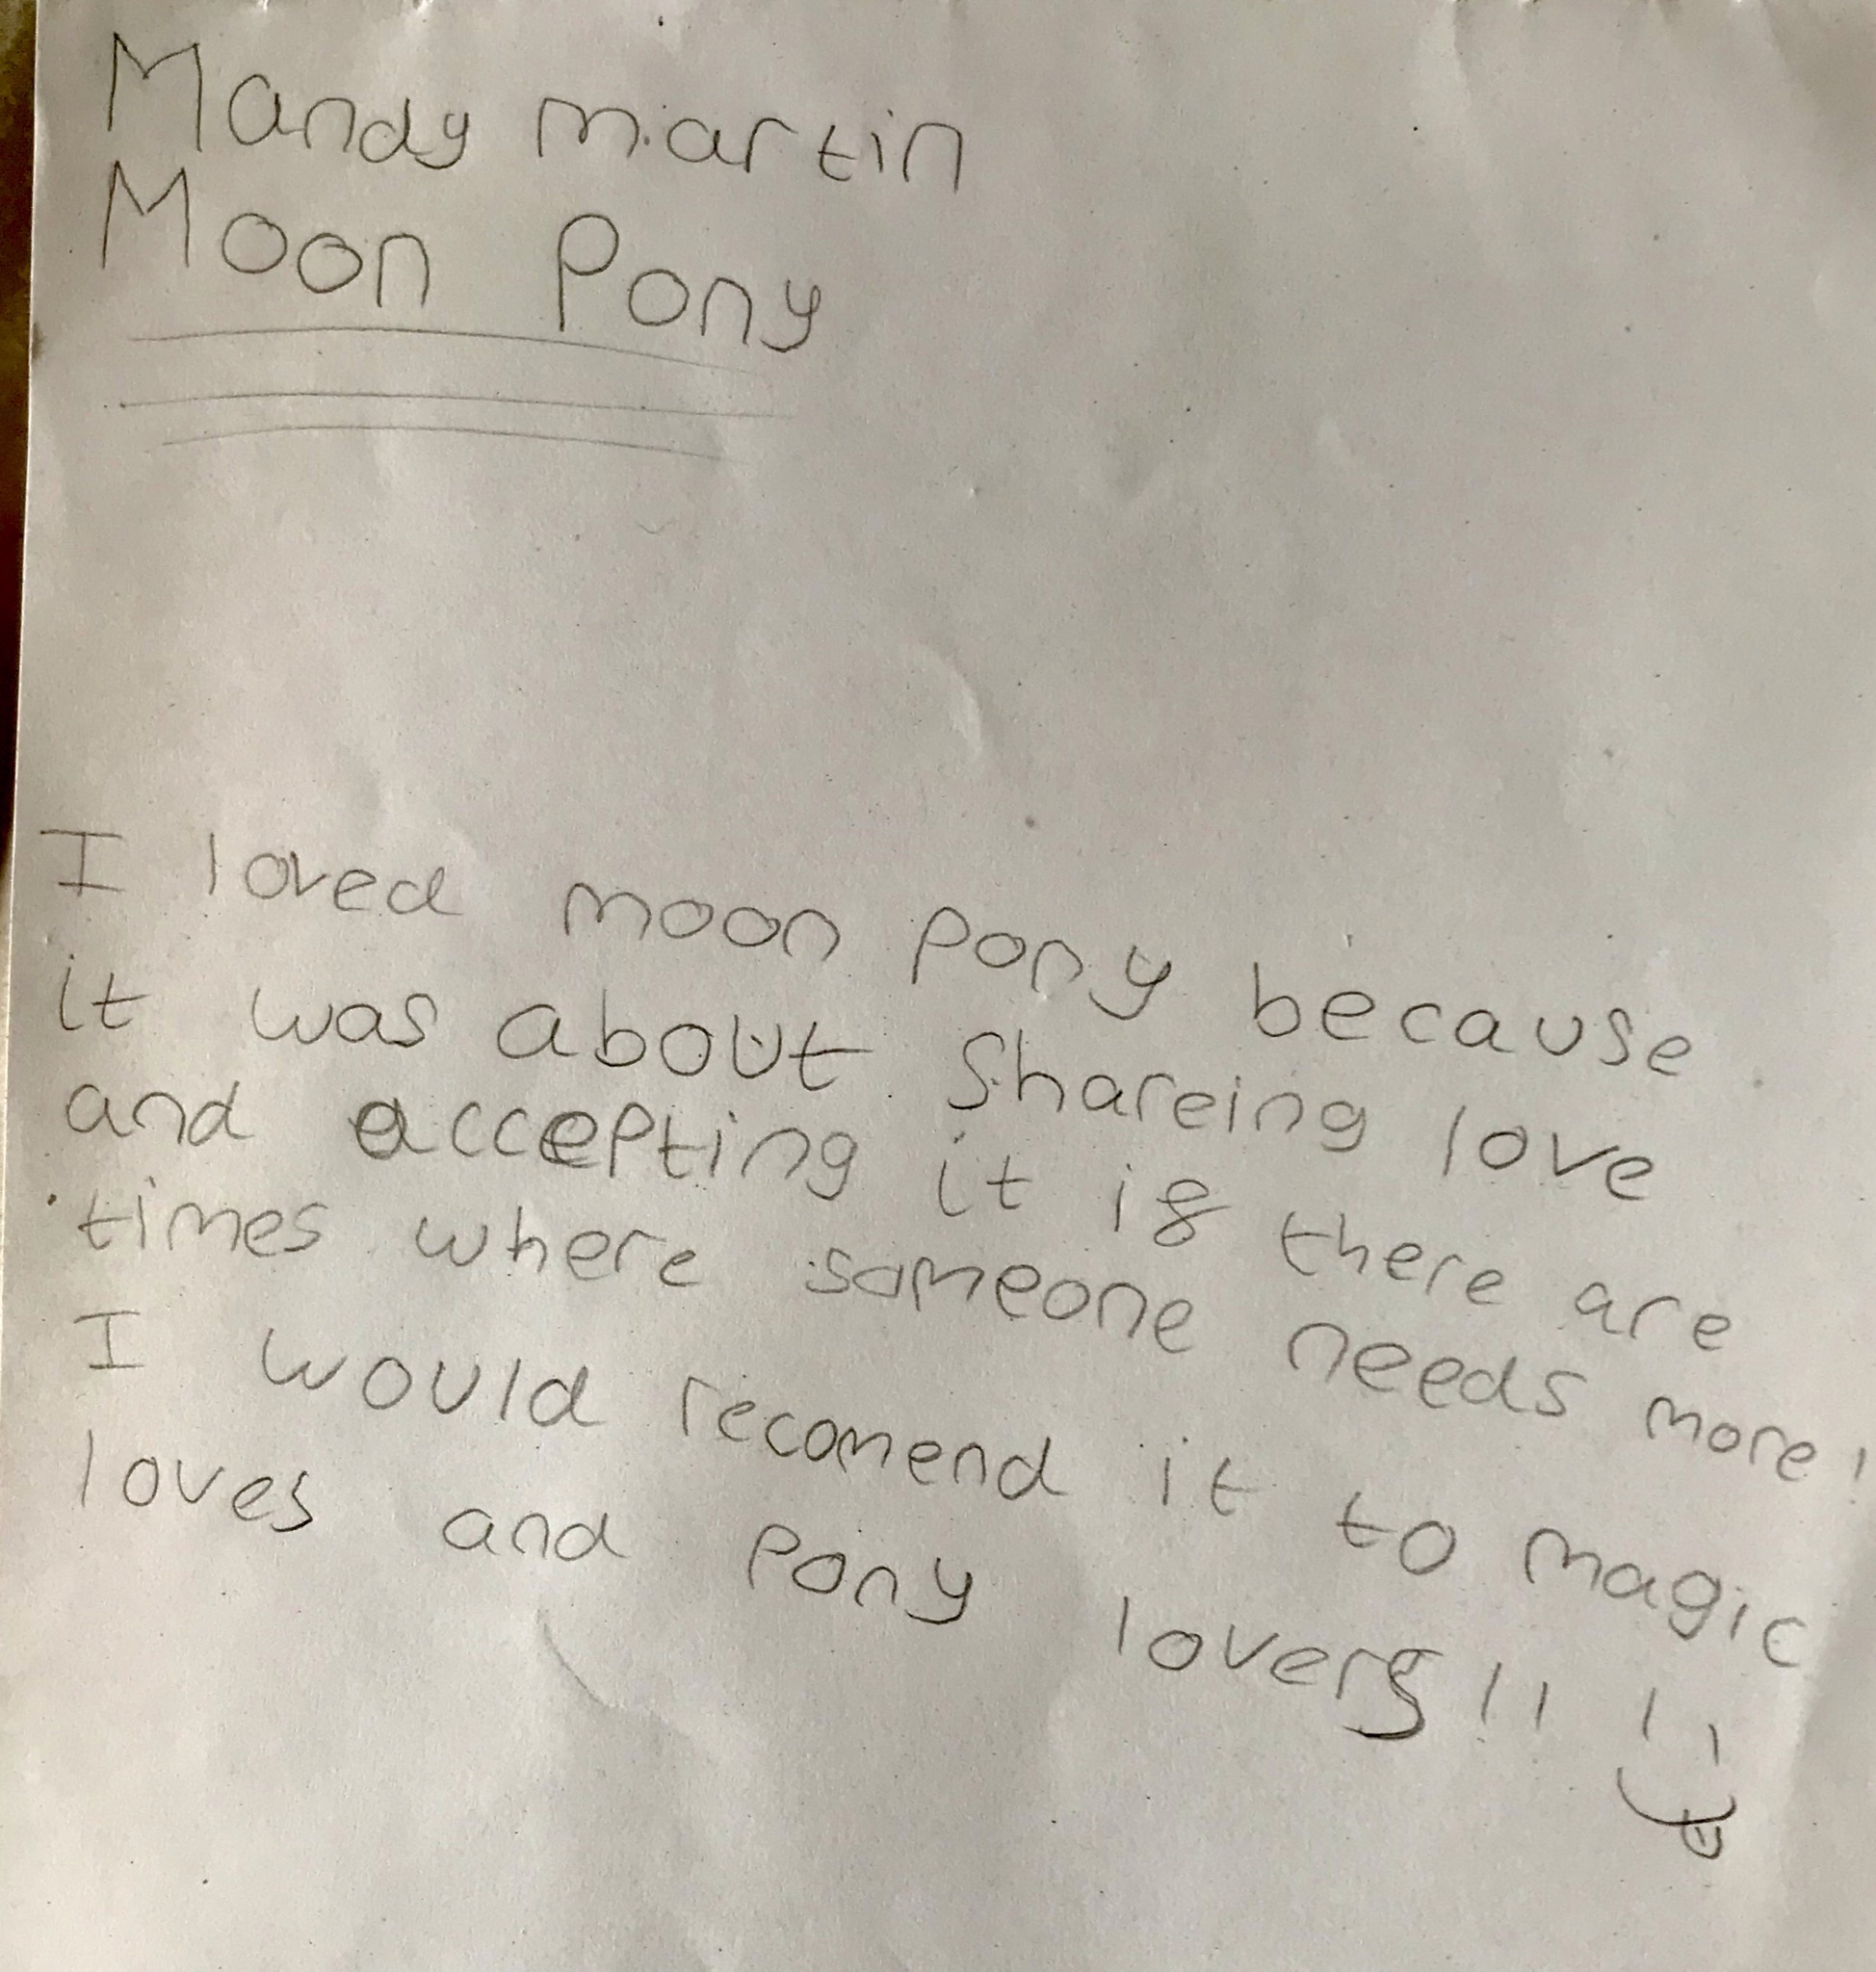 Mandy martin
Moon Pony
I loved moon pony because
it was about shareing love
and accepting it if there are
times where someone needs more!
I would recomend it to magic
loves and pony lovers!!